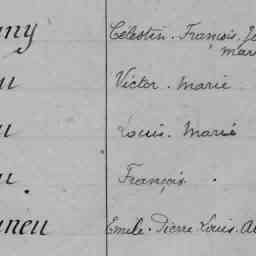 ny Célestin. François. J
mar
u Victor. Marie
u Louis. Marie
u François.
uneu Emile. Pierre. Louis. A